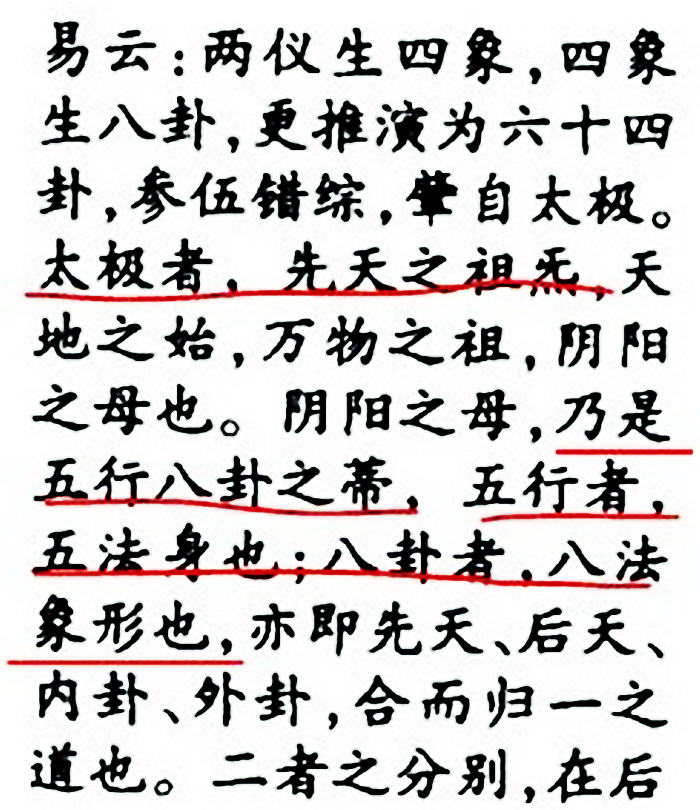 易云:两仪生四象,四象
生八卦,更推演为六十四
卦,参伍错综,肇自太极。
太极者,先天之祖炁,天
地之始,万物之祖,阴阳
之母也。阴阳之母,乃是
五行八卦之蒂,五行者,
五法身也;八卦者,八法
象形也,亦即先天、后天、
内卦、外卦,合而归一之
道也。二者之分别,在后